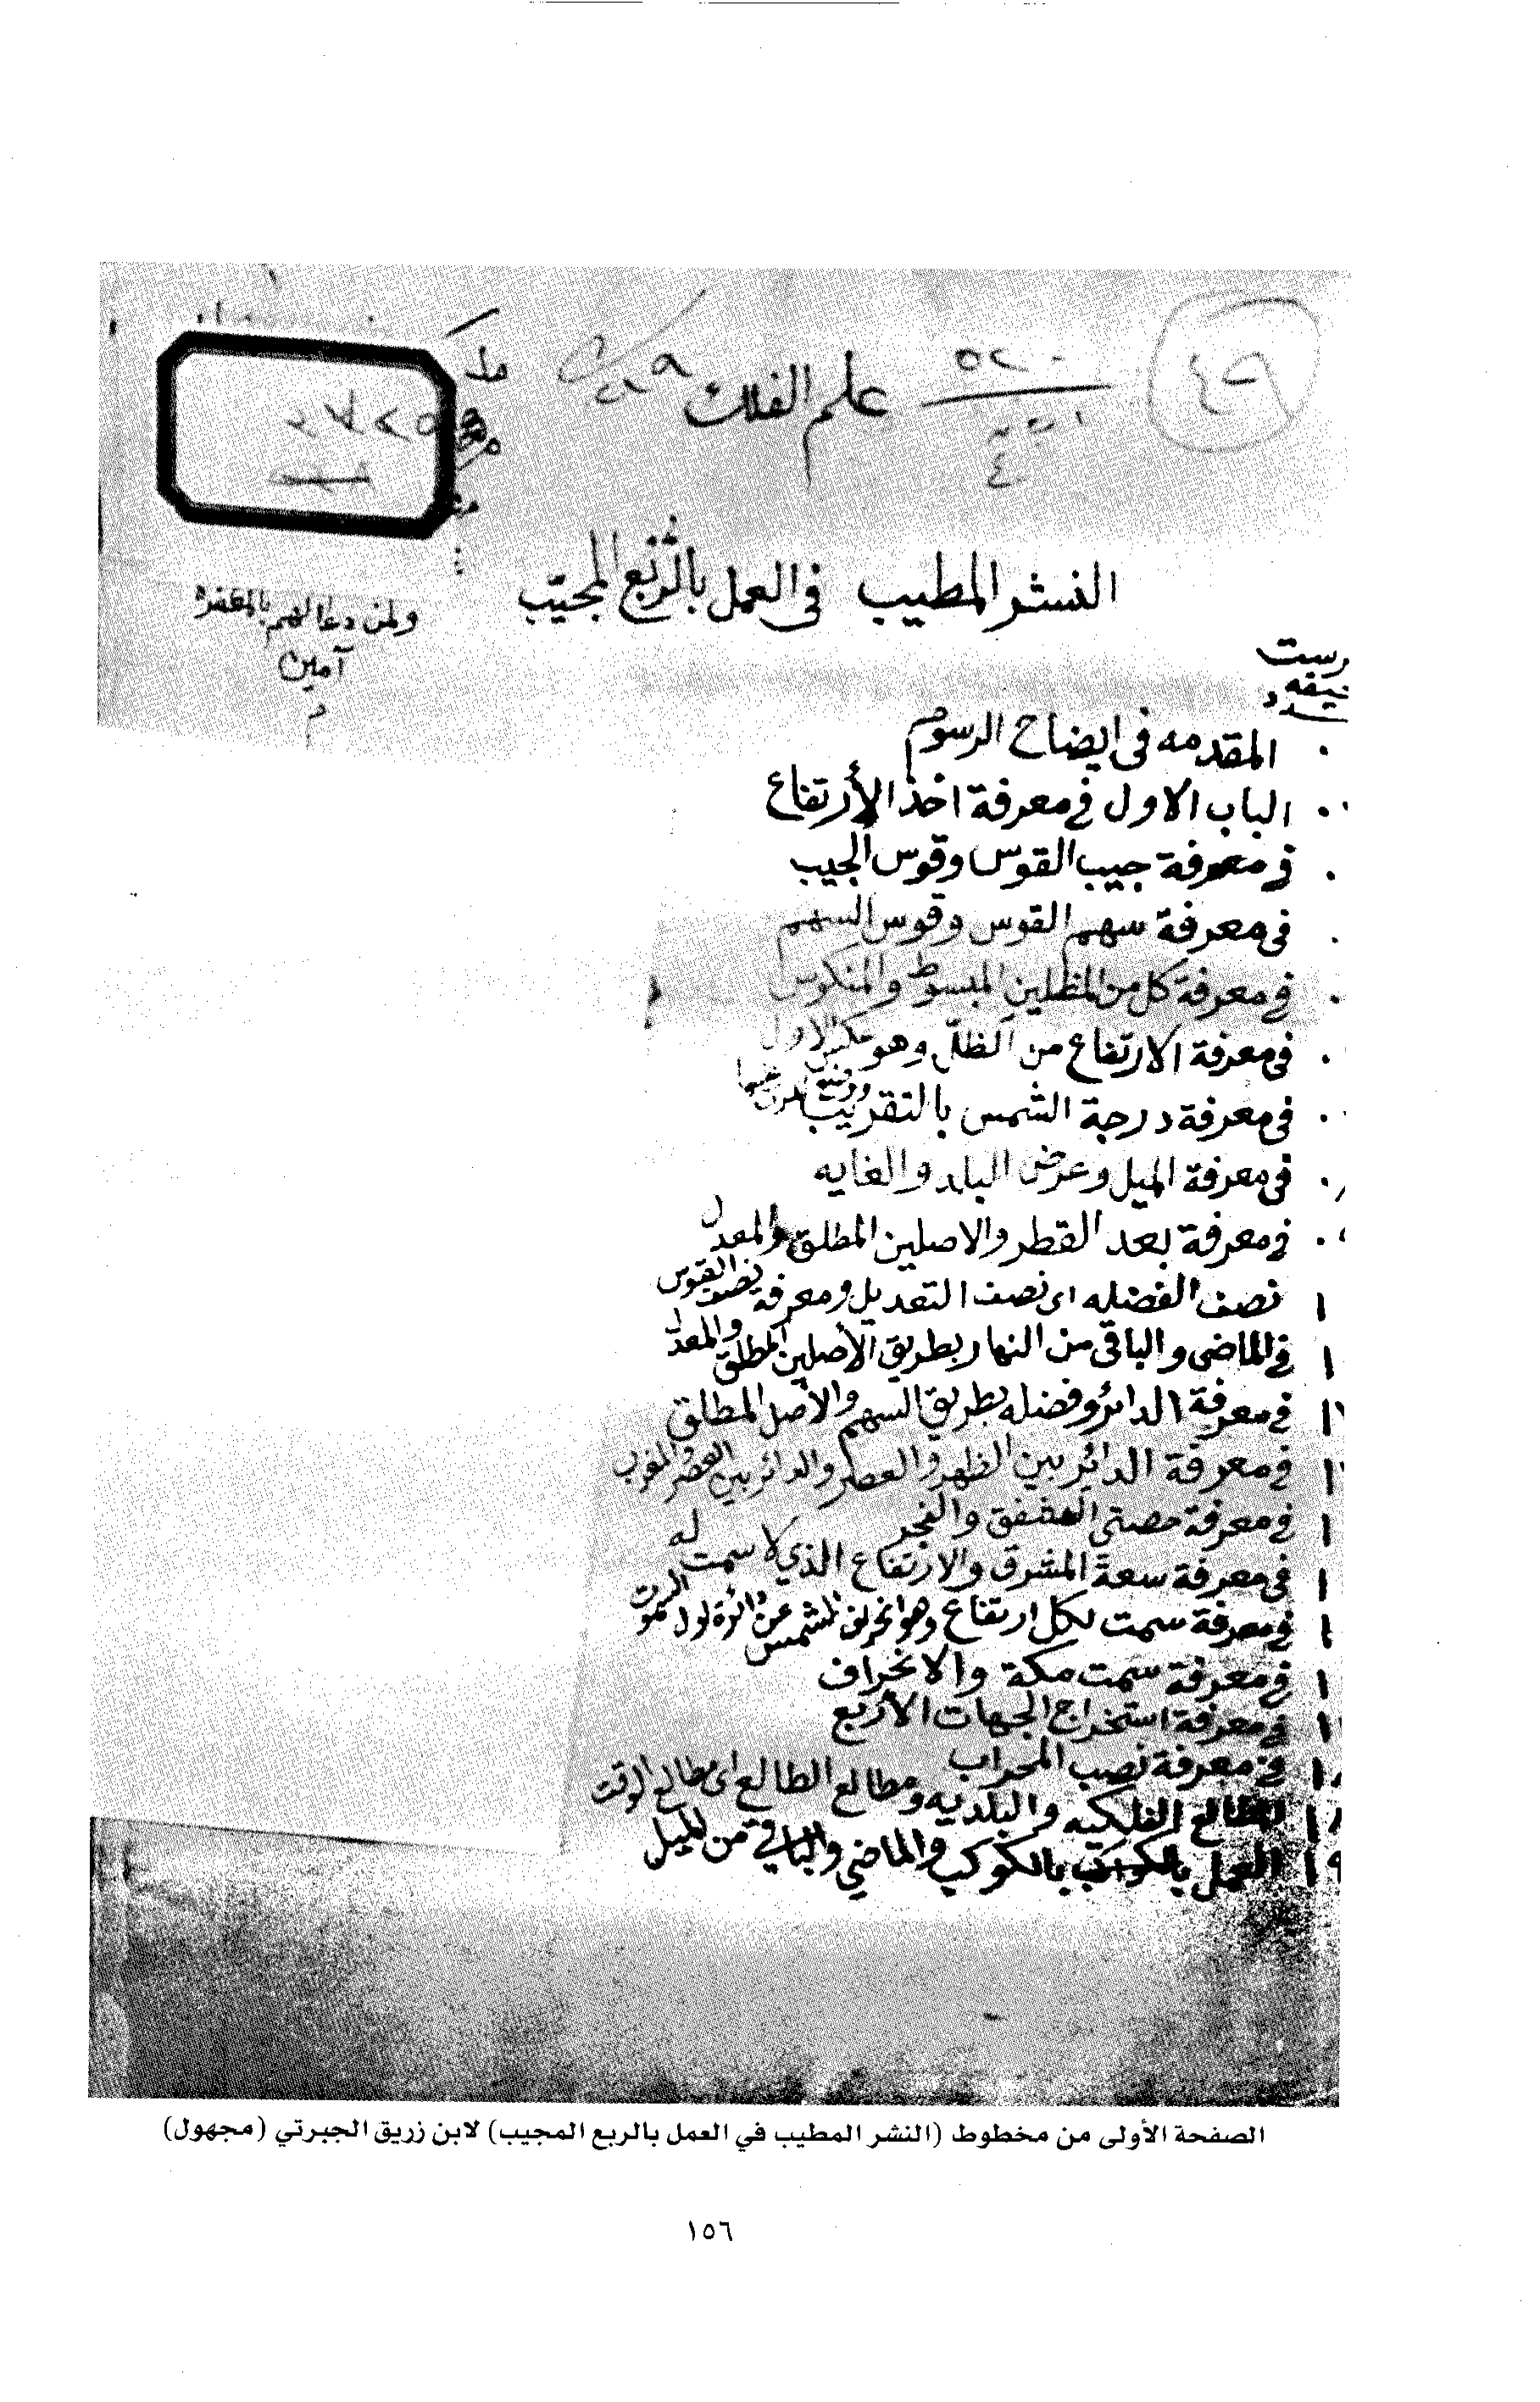 ٥٢٠
علم الفلك
٤
النشر المطيب في العمل بالربع المجيب
ولمن دعا لهم بالمغفره
آمين
م
المقدمه في ايضاح الرسوم
الباب الاول في معرفة اخذ الأرتفاع
في معرفة جيب القوس وقوس الجيب
في معرفة سهم القوس وقوس السهم
في معرفة كل من الظلين المبسوط والمنكوس
في معرفة الارتفاع من الظل وهو عكس الاول
في معرفة درجة الشمس بالتقريب
في معرفة الميل وعرض البلد والغايه
في معرفة بعد القطر والاصلين المطلق والمعدل
نصف الفضله اى نصف التعديل ومعرفة نصف القوس
في الماضى والباقى من النهار بطريق الأصلين المطلق والمعدل
في معرفة الدائر وفضله بطريق السهم والأصل المطلق
في معرفة الدائر بين الظهر والعصر والدائر بين العصر والمغرب
في معرفة حصتى الشفق والفجر
في معرفة سعة المشرق والارتفاع الذي لا سمت له
في معرفة سمت لكل ارتفاع وهو انحراف الشمس عن دائرة اول السموت
في معرفة سمت مكة والانحراف
في معرفة استخراج الجهات الأربع
في معرفة نصب المحراب
المطالع الفلكيه والبلديه ومطالع الطالع اى مطالع الوقت
العمل بالكواكب بالكوكب والماضي والباقي من الليل
الصفحة الأولى من مخطوط (النشر المطيب في العمل بالربع المجيب) لابن زريق الجبرتي (مجهول)
١٥٦